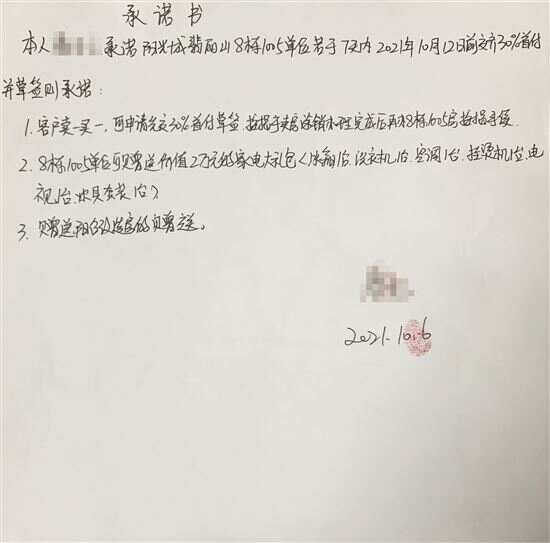 承诺书
本人 承诺 阳光城翡丽山8栋1005单位若于7天内 2021年10月12日前交齐30%首付
并草签则承诺：
1. 客户卖一买一，可申请先交30%首付草签， 完成后再 8栋1005房
2. 8栋1005单位可赠送价值2万元的家电大礼包（冰箱1台、洗衣机1台、空调1台、挂烫机1台、电
视1台、炊具套装1台）
3. 赠送阳台 的
2021.10.6